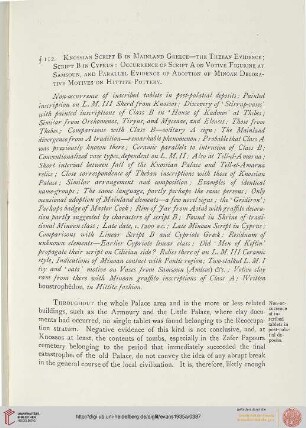 § 112. Knossian Script B in Mainland Greece—the Theban Evidence;
Script B in Cyprus; Occurrence of Script A on Votive Figurine at
Samsoun, and Parallel Evidence of Adoption of Minoan Decora-
tive Motives on Hittite Pottery.
Non-occurrence of inscribed tablets in post-palatial deposits; Painted
inscription on L. M. III Sherd from Knossos; Discovery of 'Stirrup-vases'
with painted inscriptions of Class B in 'House of Kadmos' at Thebes;
Similar from Orchomenos, Tiryns, and Mycenae, and Eleusis; Those from
Thebes; Comparisons with Class B—solitary A sign; The Mainland
divergence from A tradition—remarkable phenomenon; Probable that Class A
was previously known there; Ceramic parallels to intrusion of Class B;
Conventionalized vase types, dependent on L. M. II; Also at Tell-el-Amarna;
Short interval between fall of the Knossian Palace and Tell-el-Amarna
relics; Close correspondence of Theban inscriptions with those of Knossian
Palace; Similar arrangement and composition; Examples of identical
name-groups; The same language, partly perhaps the same persons; Only
occasional adoption of Mainland elements—a few novel signs; the
Perhaps badges of Master Cook;
Found in Shrine of tradi-
tional Minoan class; Late date, c. 1200 B.C.; Late Minoan Script in Cyprus;
Comparisons with Linear Script B and Cypriote Greek; Residuum of
unknown elements—Earlier Cypriote linear class; Did 'Men of Keftiu'
propagate their script on Cilician side? Rider there of an L. M. III Ceramic
style, Indications of Minoan contact with Pontic region; Two-sided L. M. I
ivy and motive on Vases from Samsoun (Amisos) &c.; Votive clay
ram from there with Minoan graffito inscriptions of Class A; Written
boustrophêdon, in Hittite fashion.
Throughout the whole Palace area and in the more or less related
buildings, such as the Armoury and the Little Palace, where clay docu-
ments had occurred, no single tablet was found belonging to the Reoccupa-
tion stratum. Negative evidence of this kind is not conclusive, and, as
Knossos at least, the contents of tombs, especially in the Zafer Papoura
cemetery belonging to the period that immediately succeeded the final
catastrophe of the old Palace, do not convey the idea of any abrupt break
in the general course of the local civilization. It is, therefore, likely enough
Non-oc-
currence
of in-
scribed
tablets in
post-pala-
tial de-
posits.
UNIVERSITÄTS-
BIBLIOTHEK
HEIDELBERG
http://digi.ub.uni-heidelberg.de/diglit/evans1935a/0387